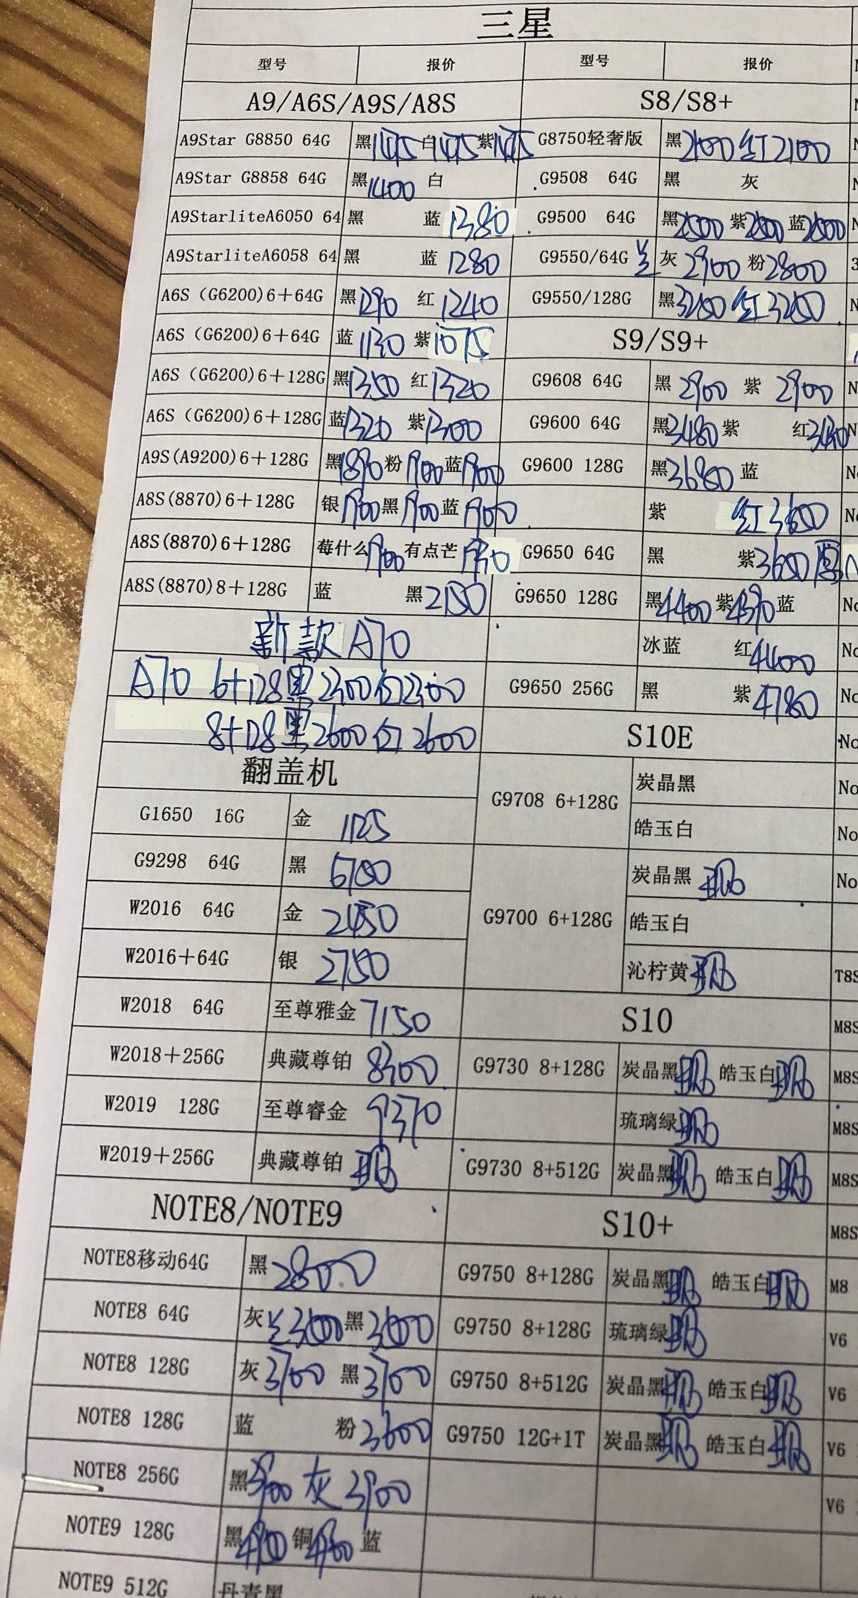 三星
型号 报价 型号 报价
A9/A6S/A9S/A8S S8/S8+
A9Star G8850 64G 黑1475白1475紫1475 G8750轻奢版 黑2100红2100
A9Star G8858 64G 黑1400 白 G9508 64G 黑 灰
A9StarliteA6050 64 黑 蓝1380 G9500 64G 黑2500紫2500蓝2500
A9StarliteA6058 64 黑 蓝1280 G9550/64G 灰2900粉2800
A6S (G6200)6+64G 黑1290 红1240 G9550/128G 黑3250红3250
A6S (G6200)6+64G 蓝1130 紫1075 S9/S9+
A6S (G6200)6+128G 黑1350 红1320 G9608 64G 黑2900 紫2900
A6S (G6200)6+128G 蓝1320 紫1300 G9600 64G 黑3480紫 红
A9S(A9200)6+128G 黑1890粉1900蓝1900 G9600 128G 黑3680蓝
A8S(8870)6+128G 银1900黑1900蓝1900 紫 红3600
A8S(8870)6+128G 莓什么1900有点芒 G9650 64G 黑 紫3600
A8S(8870)8+128G 蓝 黑2150 G9650 128G 黑4400紫4390蓝
新款A70 冰蓝 红4400
A70 6+128黑2300白2300 G9650 256G 黑 紫4780
8+128黑2600白2600 S10E
翻盖机 G9708 6+128G 炭晶黑
G1650 16G 金 1125 皓玉白
G9298 64G 黑 6700 G9700 6+128G 炭晶黑现
W2016 64G 金 2450 皓玉白
W2016+64G 银 2750 沁柠黄现
W2018 64G 至尊雅金7150 S10
W2018+256G 典藏尊铂8300 G9730 8+128G 炭晶黑现 皓玉白现
W2019 128G 至尊睿金9370 琉璃绿现
W2019+256G 典藏尊铂现 G9730 8+512G 炭晶黑现 皓玉白现
NOTE8/NOTE9 S10+
NOTE8移动64G 黑2800 G9750 8+128G 炭晶黑现 皓玉白现
NOTE8 64G 灰3600黑3600 G9750 8+128G 琉璃绿现
NOTE8 128G 灰3700 黑3700 G9750 8+512G 炭晶黑现 皓玉白现
NOTE8 128G 蓝 粉3600 G9750 12G+1T 炭晶黑现 皓玉白现
NOTE8 256G 黑3900灰3900
NOTE9 128G 黑 铜 蓝
NOTE9 512G 丹青黑